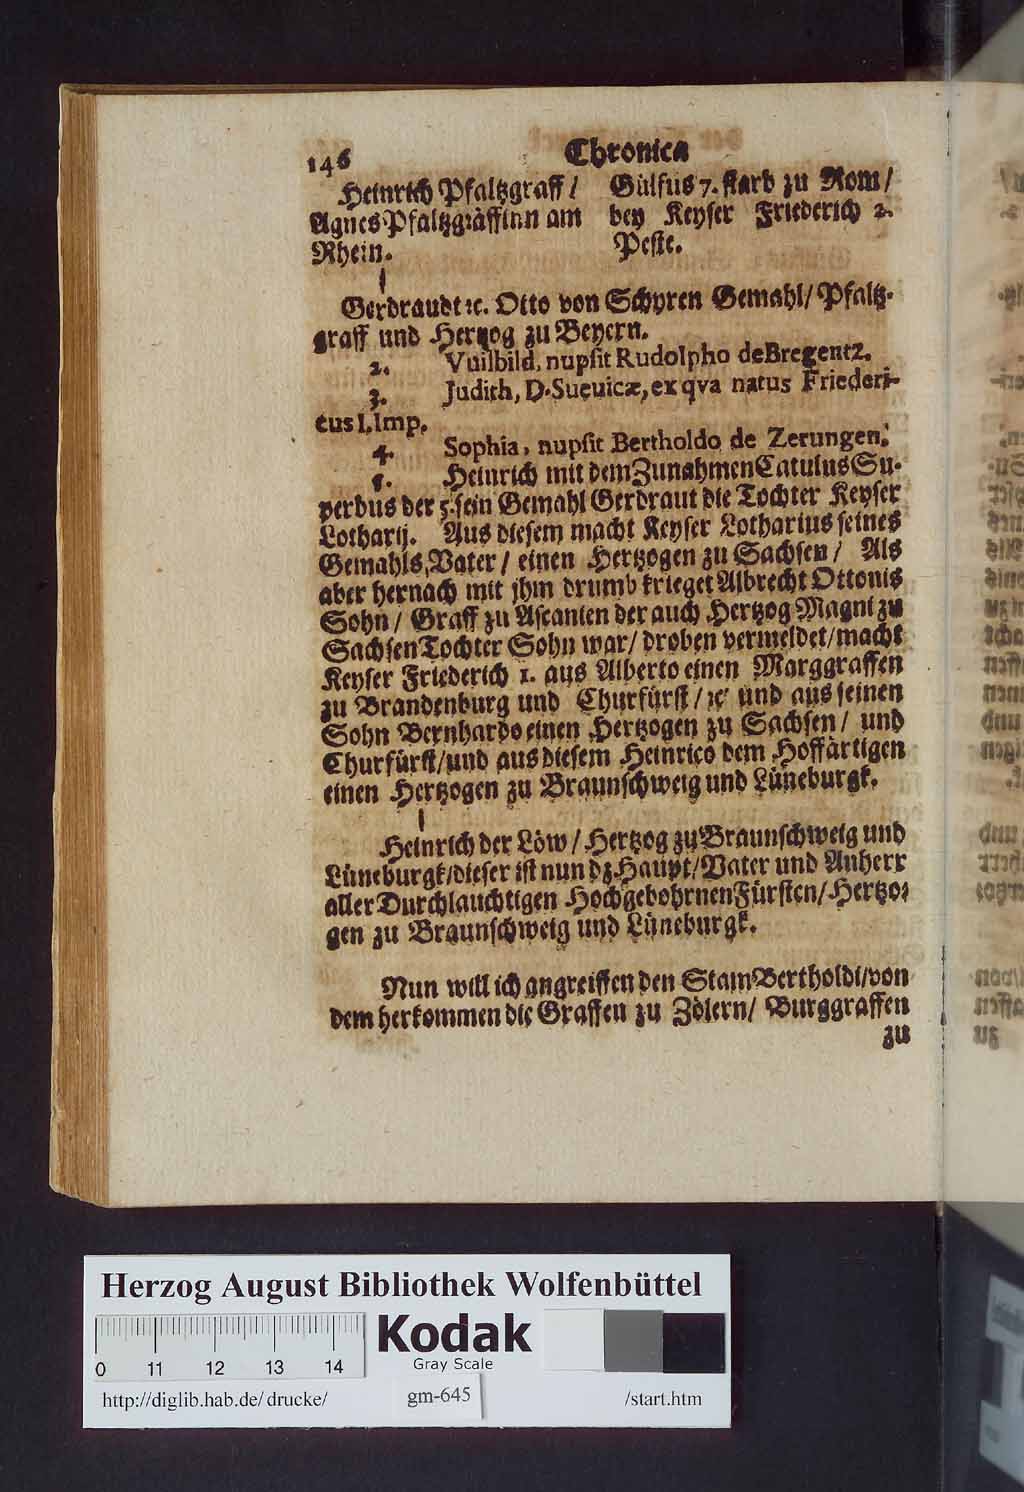 146 Chronica
Heinrich Pfaltzgraff /
Agnes Pfaltzgräffinn am
Rhein.
Gülfus 7. starb zu Rom /
bey Keyser Friederich 2.
Peste.
Gerdraudt ꝛc. Otto von Schyren Gemahl / Pfaltz-
graff und Hertzog zu Beyern.
2. Vuilbild, nupsit Rudolpho de Bregentz.
3. Judith, D. Sueuicæ, ex qva natus Friederi-
cus I. Imp.
4. Sophia, nupsit Bertholdo de Zerungen.
5. Heinrich mit dem Zunahmen Catulus Su-
perbus der 5. sein Gemahl Gerdraut die Tochter Keyser
Lotharij. Aus diesem macht Keyser Lotharius seines
Gemahls Vater / einen Hertzogen zu Sachsen / Als
aber hernach mit jhm drumb krieget Albrecht Ottonis
Sohn / Graff zu Ascanien der auch Hertzog Magni zu
Sachsen Tochter Sohn war / droben vermeldet / macht
Keyser Friederich 1. aus Alberto einen Marggraffen
zu Brandenburg und Churfürst / ꝛc und aus seinen
Sohn Bernhardo einen Hertzogen zu Sachsen / und
Churfürst / und aus diesem Heinrico dem Hoffärtigen
einen Hertzogen zu Braunschweig und Lüneburgk.
Heinrich der Löw / Hertzog zu Braunschweig und
Lüneburgk / dieser ist nun dz Haupt / Vater und Anherr
aller Durchlauchtigen Hochgebohrnen Fürsten / Hertzo-
gen zu Braunschweig und Lüneburgk.
Nun will ich angreiffen den Stam Bertholdi / von
dem herkommen die Graffen zu Zölern / Burggraffen
zu
Herzog August Bibliothek Wolfenbüttel
Kodak
Gray Scale
0 11 12 13 14
http://diglib.hab.de/drucke/ gm-645 /start.htm